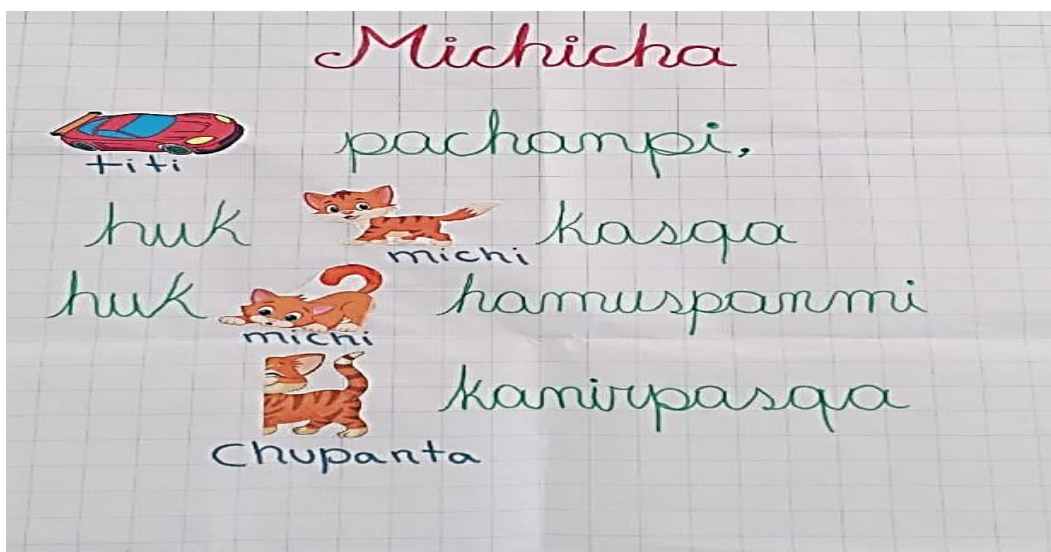 Michicha
titi pachanpi,
huk michi kasqa
huk michi hamuspanmi
chupanta kanirpasqa